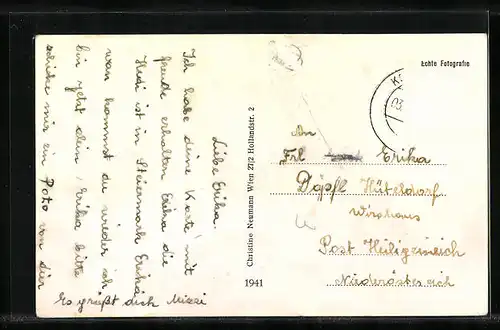 Liebe Erika.
Ich habe deine Karte mit
freude erhalten Erika die
Hedi ist in Steiermark Erika
wan kommst du wieder ich
bin jetzt alein, Erika bitte
schicke mir ein Poto von dier
Es grüßt dich Mizzi
Echte Fotografie
An
Frl. Erika
Döpfl Hütteldorf
Wirthaus
Post Heiligeneich
Niederösterreich
Christine Neumann Wien 27/2 Hollandstr. 2
1941